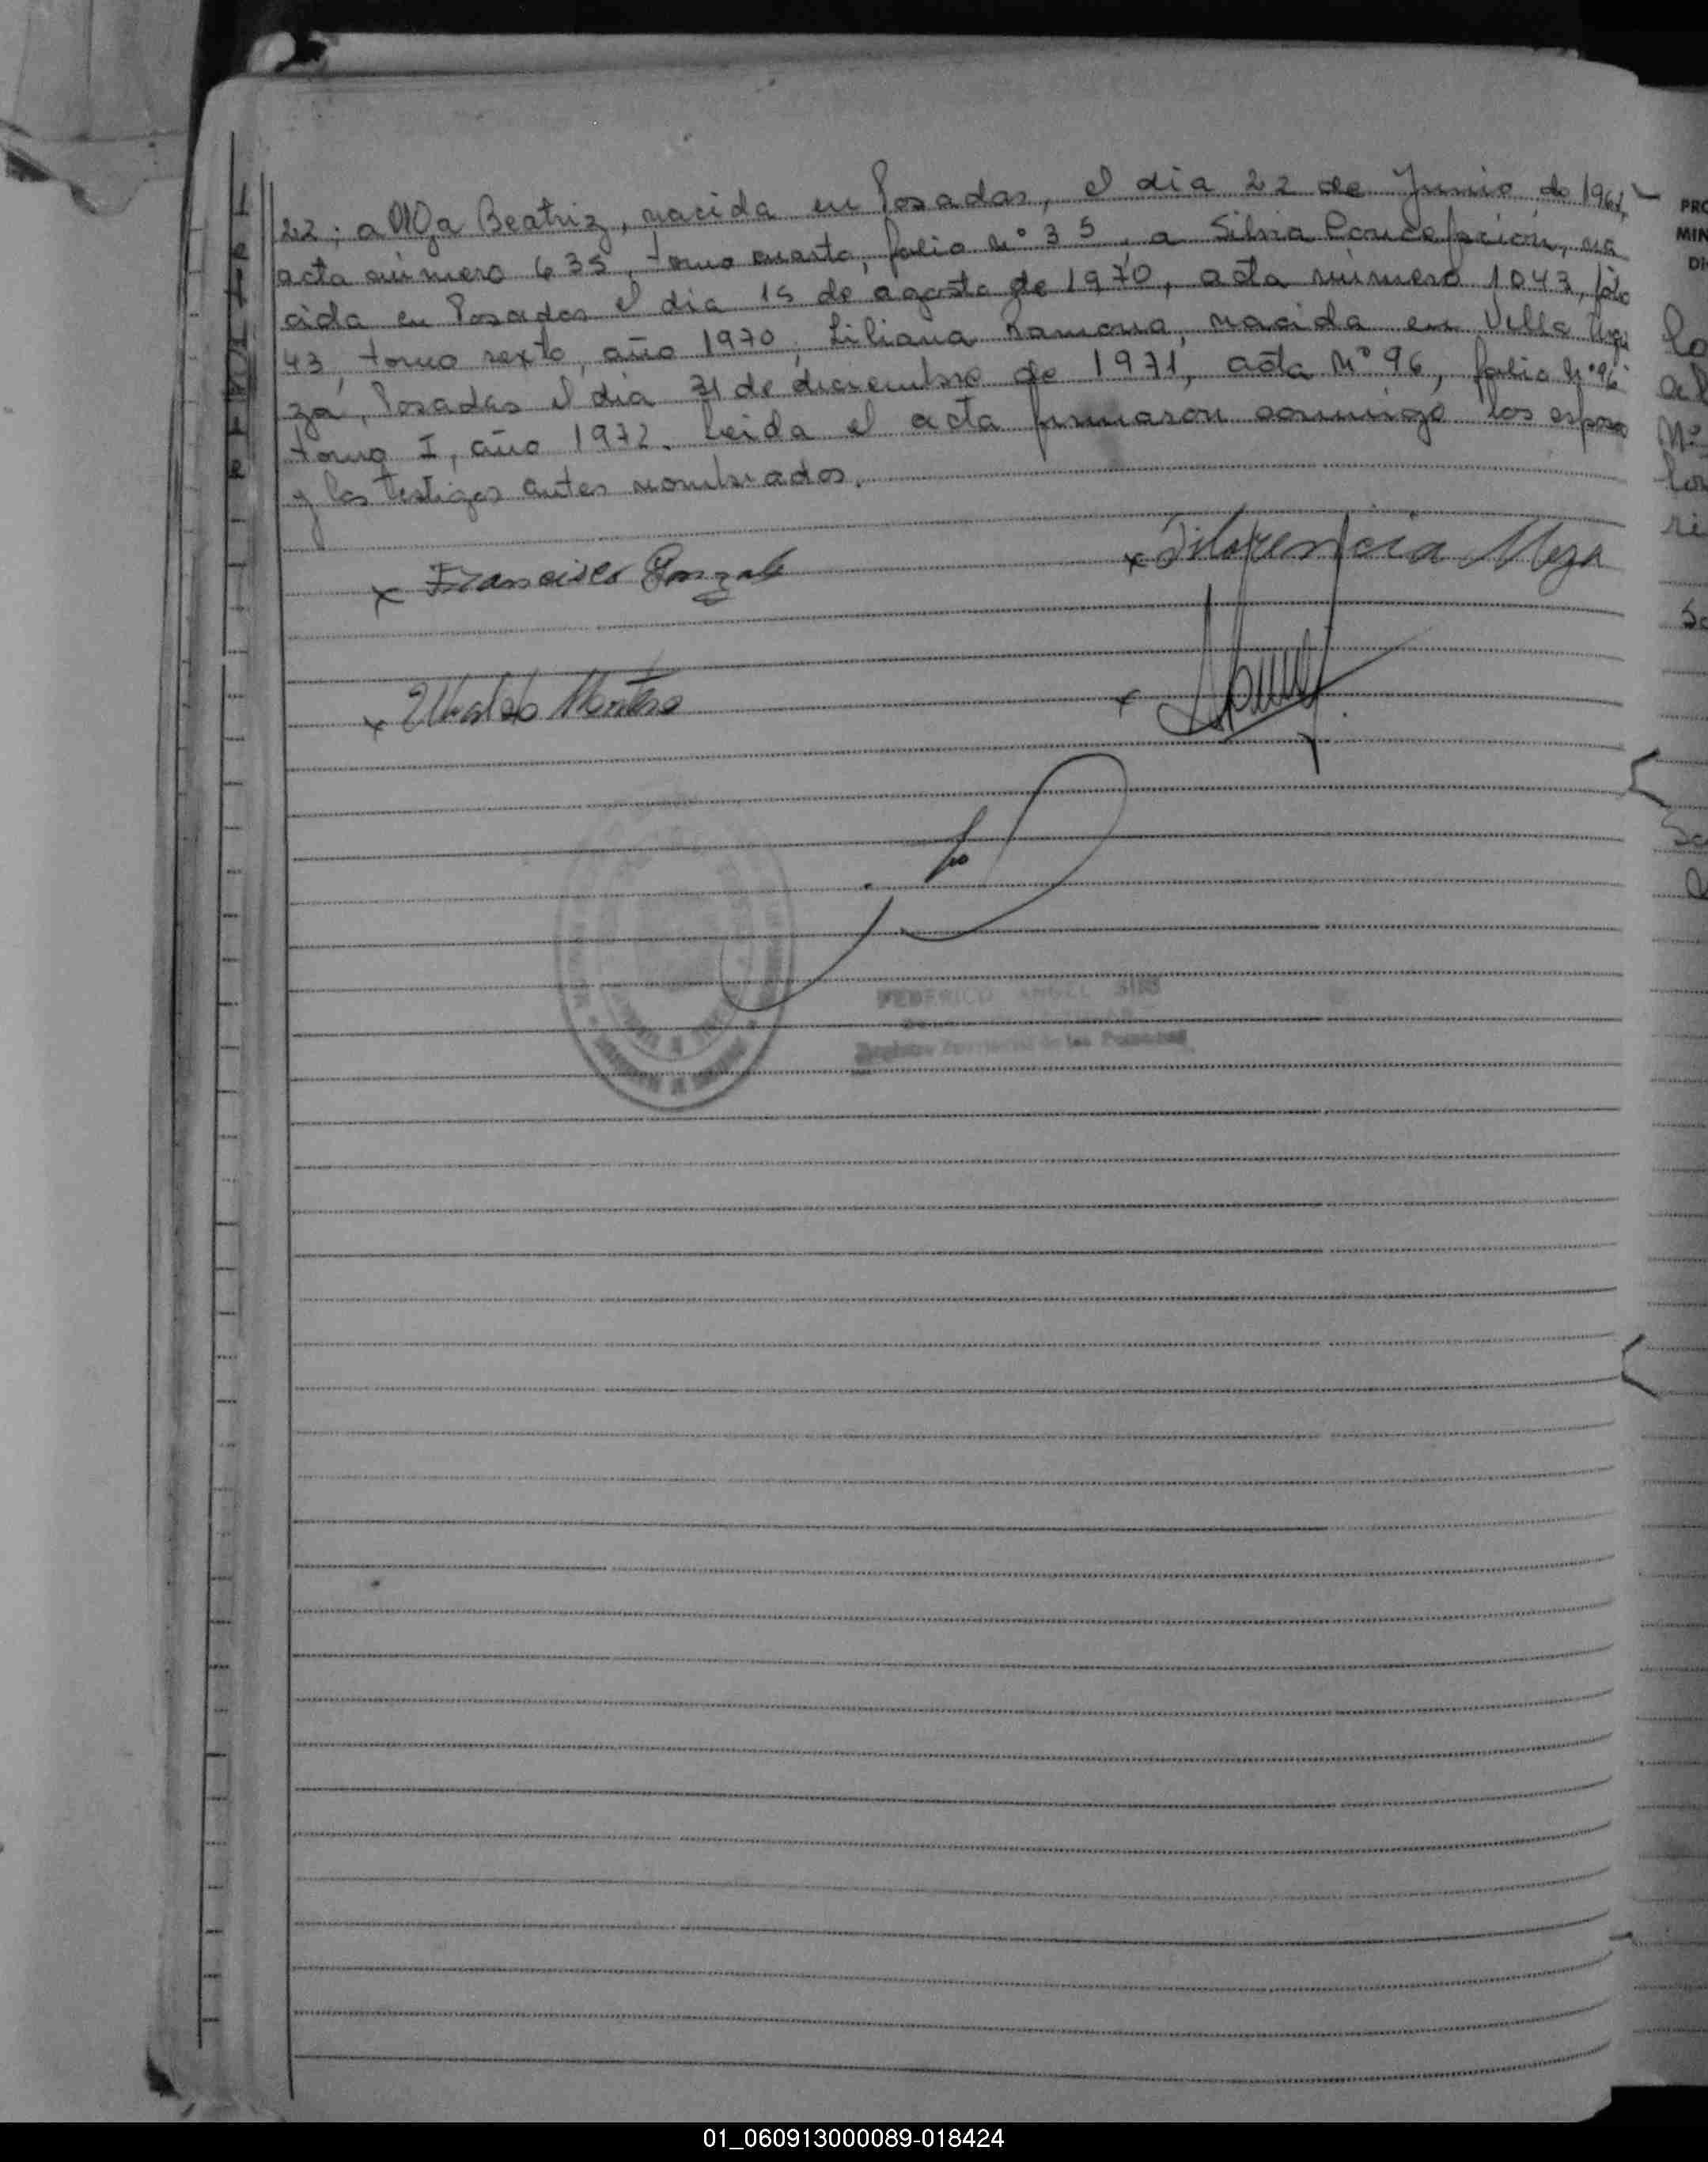 22; a Olga Beatriz, nacida en Posadas, el dia 22 de Junio de 1961,
acta número 635, tomo cuarto, folio Nº 35, a Silvia Concepción, na
cida en Posadas el dia 15 de agosto de 1970, acta número 1043, folio
43, tomo sexto, año 1970, Liliana Ramona, nacida en Villa Urqui
za, Posadas el dia 31 de diciembre de 1971, acta Nº 96, folio Nº 96
tomo I, año 1972. Leida el acta firmaron conmigo los esposos
y los testigos antes nombrados.
x Francisco Gonzale
x Filorencia Meza
x Ubaldo
x
FEDERICO ANGEL
Registro Provincial de las Personas
PRO
MIN
DI
01_060913000089-018424